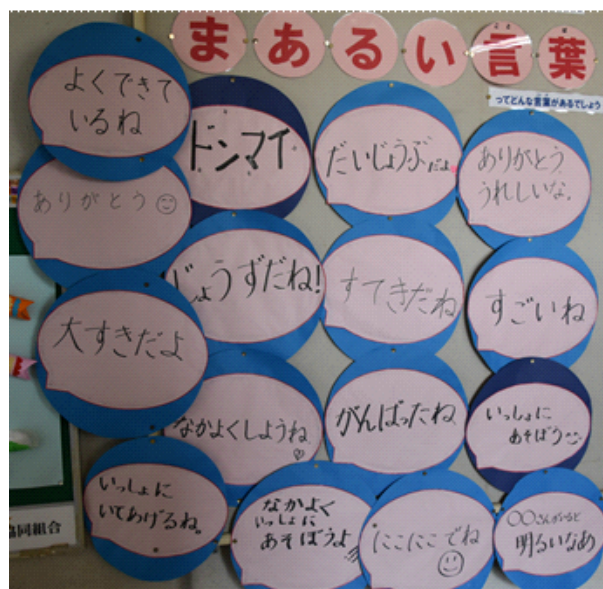 まあるい言葉
ってどんな言葉があるでしょう
よくできて
いるね
ドンマイ
だいじょうぶだよ
ありがとう
うれしいな。
ありがとう
じょうずだね!
すてきだね
すごいね
大すきだよ
なかよくしようね
がんばったね
いっしょに
あそぼう
いっしょに
いてあげるね。
なかよく
いっしょに
あそぼうよ
にこにこでね
○○さんがいると
明るいなあ
協同組合